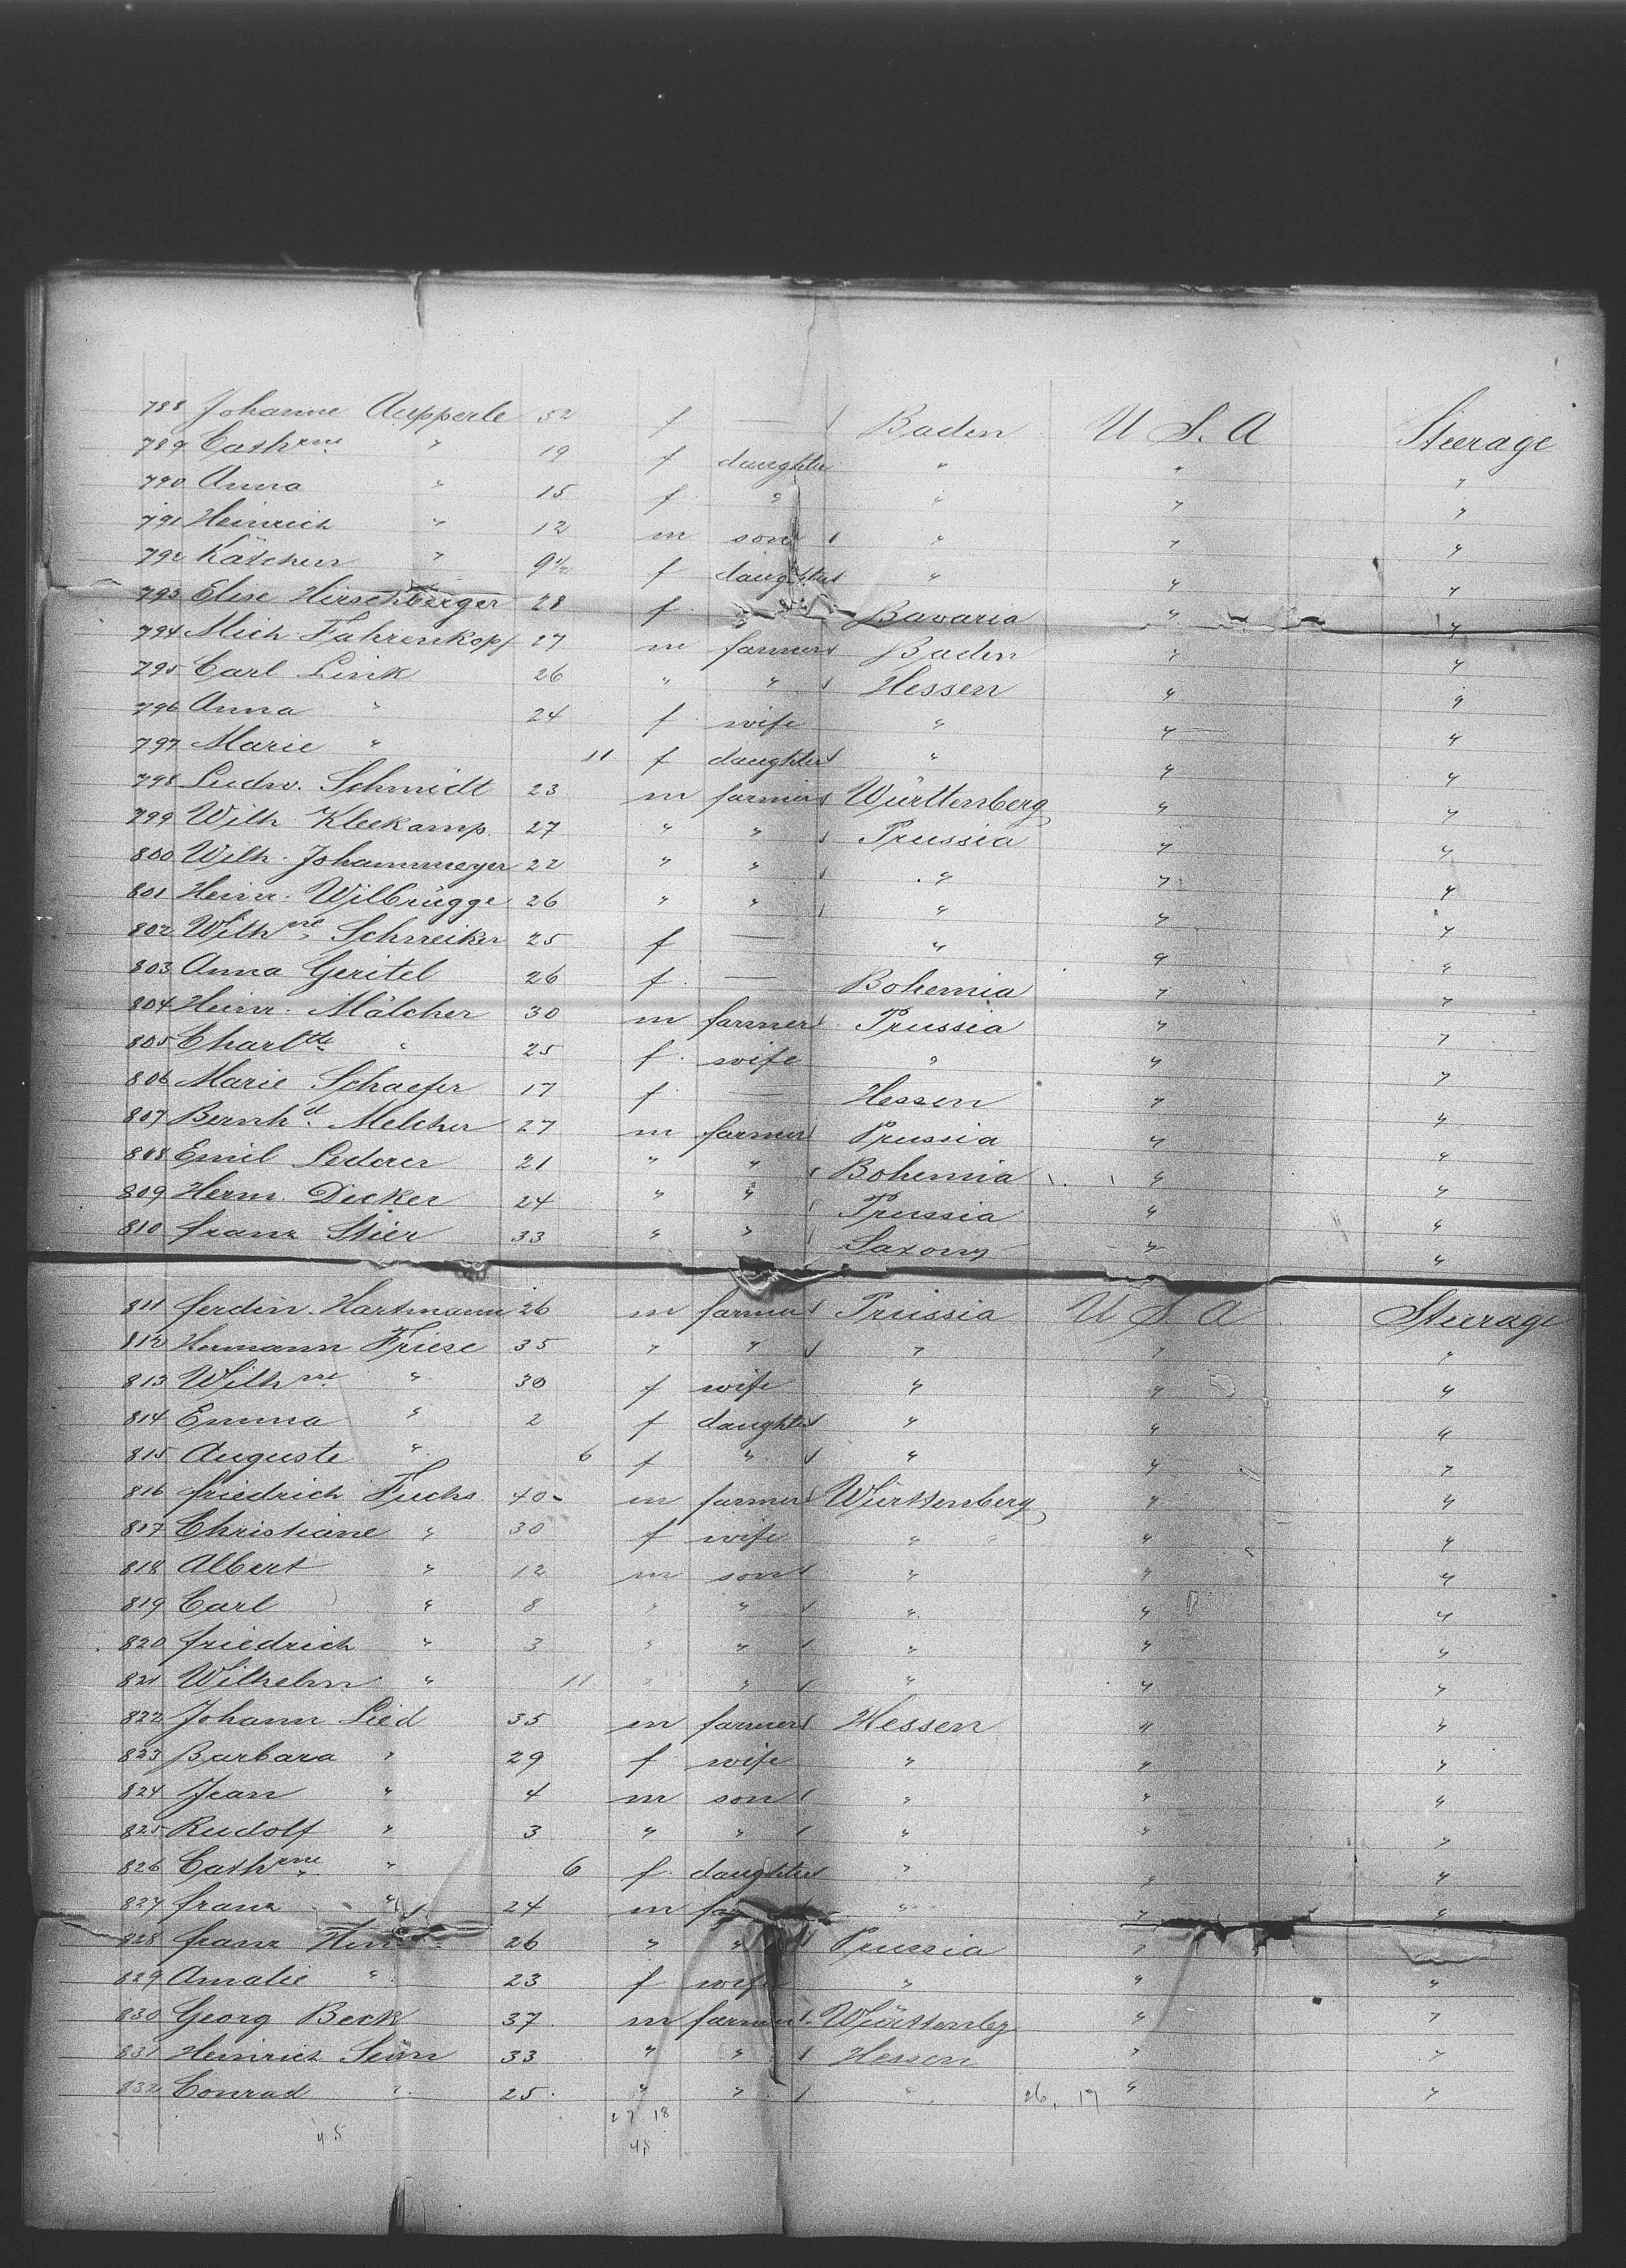 788 Johanne Aupperle 52 f — Baden U S. A Steerage
789 Cathrne " 19 f daughter " " "
790 Anna " 15 f " " " "
791 Heinrich " 12 m son " " "
792 Kätchen " 9½ f daughter " " "
793 Elise Hirschberger 28 f Bavaria " "
794 Mich. Fahrenkopf 27 m farmer Baden " "
795 Carl Link 26 " " Hessen " "
796 Anna " 24 f wife " " "
797 Marie " 11 f daughter " " "
798 Ludw. Schmidt 23 m farmer Württenberg " "
799 Wilh. Kleekamp 27 " " Prussia " "
800 Wilh. Johannmeyer 22 " " " " "
801 Heinr. Wilbrügge 26 " " " " "
802 Wilhne Schneiker 25 f — " " "
803 Anna Geritel 26 f — Bohemia " "
804 Heinr. Mälcher 30 m farmer Prussia " "
805 Charltte " 25 f wife " " "
806 Marie Schaefer 17 f — Hessen " "
807 Bernhd. Melcher 27 m farmer Prussia " "
808 Emil Lederer 21 " " Bohemia " "
809 Herm. Decker 24 " " Prussia " "
810 Franz Stier 33 " " Saxony " "
811 Ferdin. Hartmann 26 m farmer Prussia U S. A Steerage
812 Hermann Friese 35 " " " " "
813 Wilhne " 30 f wife " " "
814 Emma " 2 f daughter " " "
815 Auguste " 6 f " " " "
816 Friedrich Fuchs 40 m farmer Württenberg " "
817 Christiane " 30 f wife " " "
818 Albert " 12 m son " " "
819 Carl " 8 " " " " "
820 Friedrich " 3 " " " " "
821 Wilhelm " 11 " " " " "
822 Johann Lied 35 m farmer Hessen " "
823 Barbara " 29 f wife " " "
824 Jean " 4 m son " " "
825 Rudolf " 3 " " " " "
826 Cathrne " 6 f daughter " " "
827 Franz " 24 m " " "
828 Franz 26 " " Prussia " "
829 Amalie " 23 f wife " " "
830 Georg Beck 37 m farmer Württenbg " "
831 Heinrich 33 " " Hessen " "
832 Conrad " 25 " " " 26, 19 " "
27 18
45 45